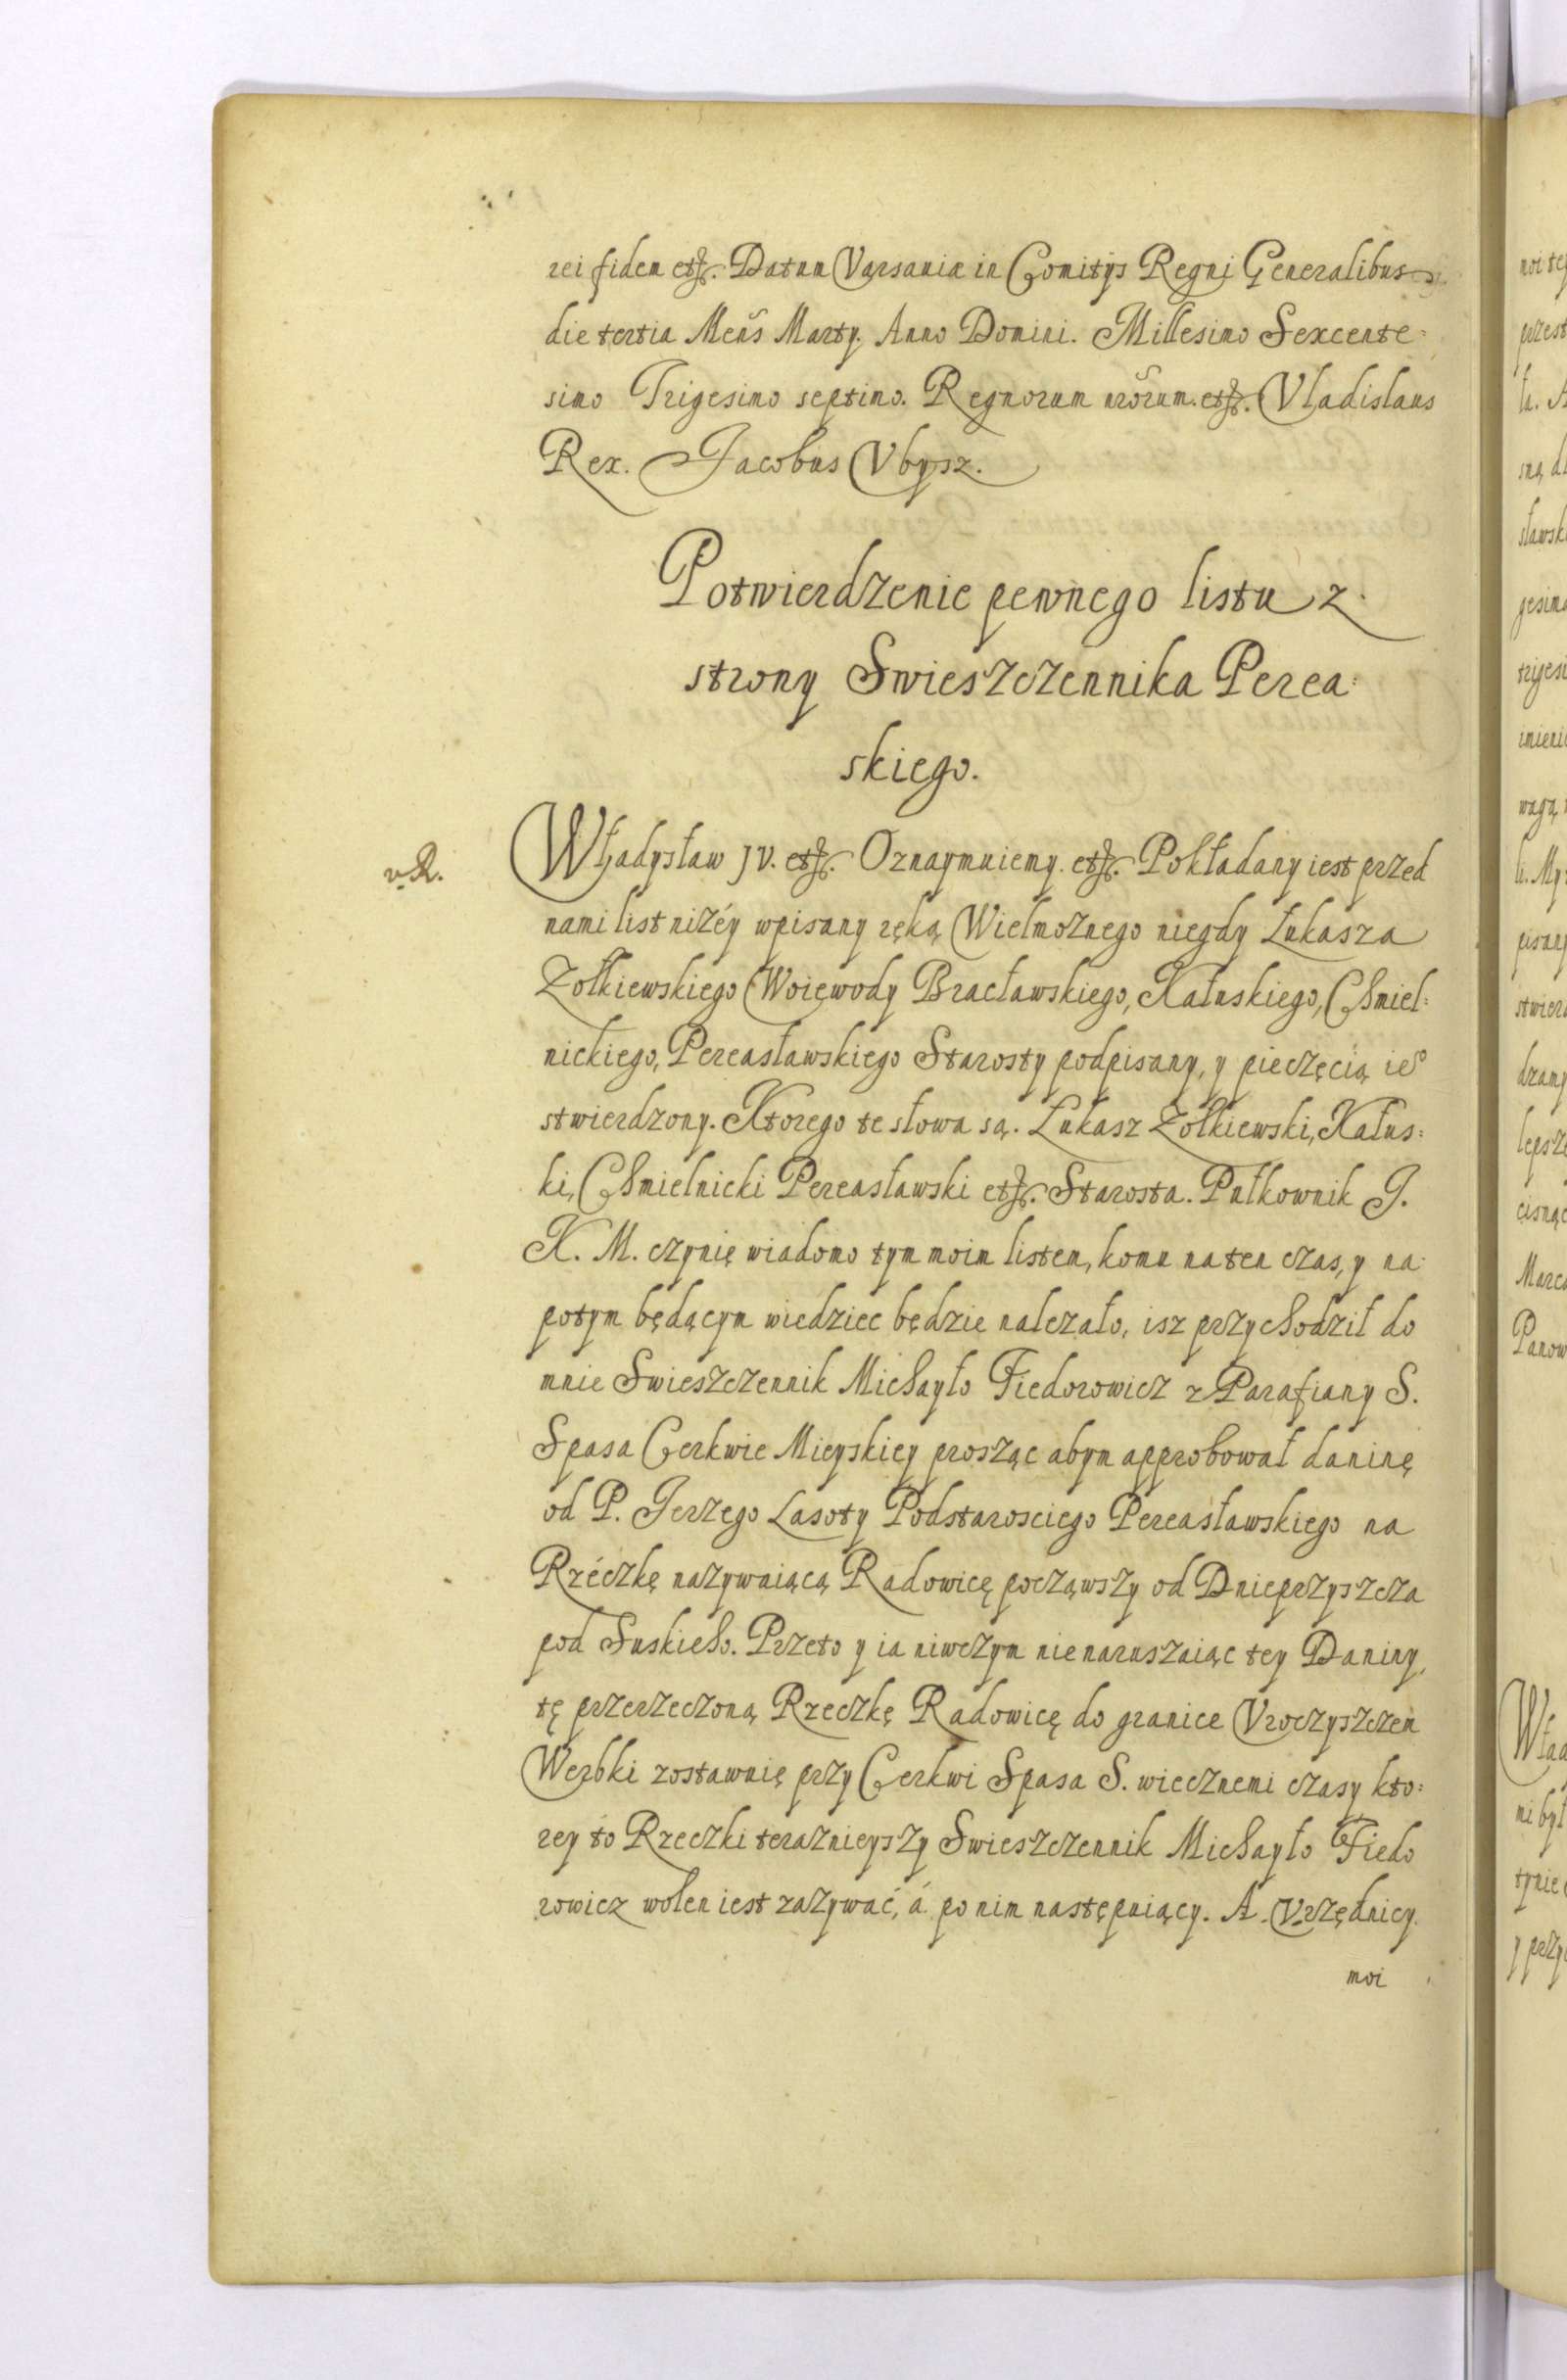 rei fidem etc. Datum Varsauiæ in Comitÿs Regni Generalibus
die tertia Meñs Marty. Anno Domini. Millesimo Sexcente=
simo Trigesimo septimo. Regnorum nrõrum. etc. Vladislaus
Rex. Jacobus Vbysz.
Potwierdzenie pewnego listu z
strony Swieszczennika Perea=
skiego.
v. R.
Władysław JV. etc. Oznaymuiemy. etc. Pokładany iest przed
nami list niżéy wpisany ręką Wielmożnego niegdy Łukasza
Żołkiewskiego Woiewody Bracławskiego, Kałuskiego, Chmiel=
nickiego, Pereasławskiego Starosty podpisany, y pieczęcią ieo
stwierdzony. Ktorego te słowa są. Łukasz Żołkiewski, Kałus=
ki, Chmielnicki Pereasławski etc. Starosta. Pułkownik J.
K. M. czynię wiadomo tym moim listem, komu na ten czas, y na
potym będącym wiedziec będzie należało, isz przychodził do
mnie Swieszczennik Michayło Fiedorowicz z Parafiany S.
Spasa Cerkwie Mieyskiey prosząc abym approbował daninę
od P. Jerzego Lasoty Podstarosciego Pereasławskiego na
Rzéczkę nazywaiącą Radowicę począwszy od Dnieprzyszcza
pod Suskieho. Przeto y ia niwczym nie naruszaiąc tey Daniny,
tę przerzeczoną Rzeczkę Radowicę do granice Vroczyszczem
Werbki zostawuię przy Cerkwi Spasa S. wiecznemi czasy kto=
rey to Rzeczki teraznieyszy Swieszczennik Michayło Fiedo
rowicz wolen iest zażywać, á po nim następuiący. A Vrzędnicy
moi